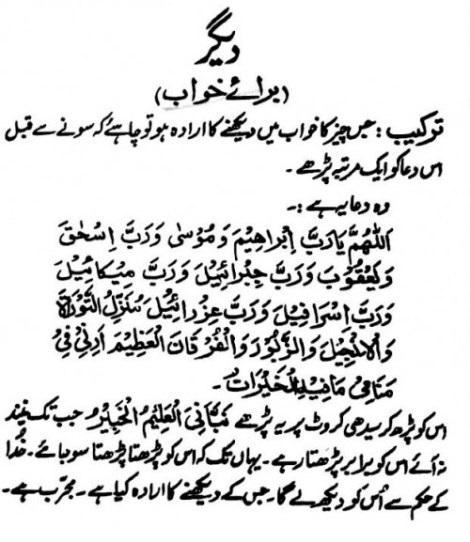 دیگر
(برائے خواب)
ترکیب: جس چیز کا خواب میں دیکھنے کا ارادہ ہو تو چاہئے کہ سونے سے قبل
اس دعا کو ایک مرتبہ پڑھے۔
وہ دعا یہ ہے:۔
اَللّٰهُمَّ يَارَبَّ اِبْرَاهِيْمَ وَمُوْسٰى وَرَبَّ اِسْحٰقَ
وَيَعْقُوْبَ وَرَبَّ جِبْرَائِيْلَ وَرَبَّ مِيْكَائِيْلَ
وَرَبَّ اِسْرَافِيْلَ وَرَبَّ عِزْرَائِيْلَ مُنَزِّلَ التَّوْرَاةَ
وَالْاِنْجِيْلَ وَالزَّبُوْرَ وَالْفُرْقَانَ الْعَظِيْمَ اَرِنِيْ فِيْ
مَنَامِيْ مَا فِيْهِ الْخَيْرَاتُ۔
اس کو پڑھ کر سیدھی کروٹ پر یہ پڑھے نَبَّأَنِيَ الْعَلِيْمُ الْخَبِيْرُ جب تک نیند
نہ آئے اس کو برابر پڑھتا رہے۔ یہاں تک کہ اس کو پڑھتا پڑھتا سو جائے۔ خُدا
کے حکم سے اُس کو دیکھ لے گا۔ جس کے دیکھنے کا ارادہ کیا ہے۔ مجرّب ہے۔